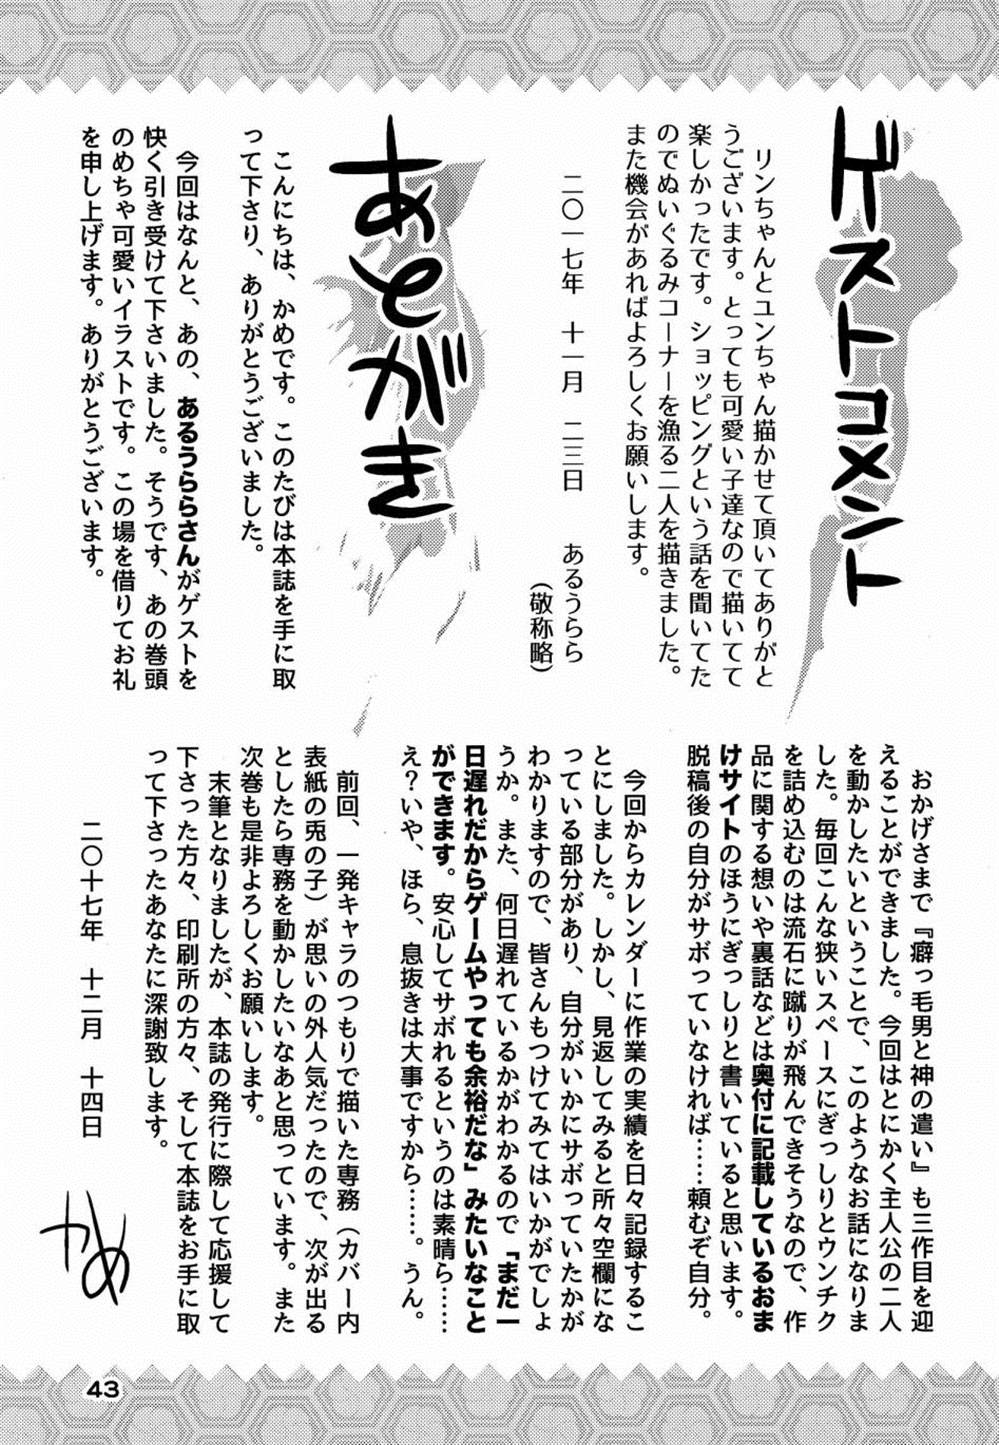 ゲストコメント
リンちゃんとユンちゃん描かせて頂いてありがと
うございます。とっても可愛い子達なので描いてて
楽しかったです。ショッピングという話を聞いてた
のでぬいぐるみコーナーを漁る二人を描きました。
また機会があればよろしくお願いします。
二〇一七年 十一月 二三日 あるうらら
(敬称略)
あとがき
こんにちは、かめです。このたびは本誌を手に取
って下さり、ありがとうございました。
今回はなんと、あの、あるうららさんがゲストを
快く引き受けて下さいました。そうです、あの巻頭
のめちゃ可愛いイラストです。この場を借りてお礼
を申し上げます。ありがとうございます。
おかげさまで『癖っ毛男と神の遣い』も三作目を迎
えることができました。今回はとにかく主人公の二人
を動かしたいということで、このようなお話になりま
した。毎回こんな狭いスペースにぎっしりとウンチク
を詰め込むのは流石に蹴りが飛んできそうなので、作
品に関する想いや裏話などは奥付に記載しているおま
けサイトのほうにぎっしりと書いていると思います。
脱稿後の自分がサボっていなければ……頼むぞ自分。
今回からカレンダーに作業の実績を日々記録するこ
とにしました。しかし、見返してみると所々空欄にな
っている部分があり、自分がいかにサボっていたかが
わかりますので、皆さんもつけてみてはいかがでしょ
うか。また、何日遅れているかがわかるので「まだ一
日遅れだからゲームやっても余裕だな」みたいなこと
ができます。安心してサボれるというのは素晴ら……
え?いや、ほら、息抜きは大事ですから……。うん。
前回、一発キャラのつもりで描いた専務(カバー内
表紙の兎の子)が思いの外人気だったので、次が出る
としたら専務を動かしたいなあと思っています。また
次巻も是非よろしくお願いします。
末筆となりましたが、本誌の発行に際して応援して
下さった方々、印刷所の方々、そして本誌をお手に取
って下さったあなたに深謝致します。
二〇十七年 十二月 十四日
かめ
43